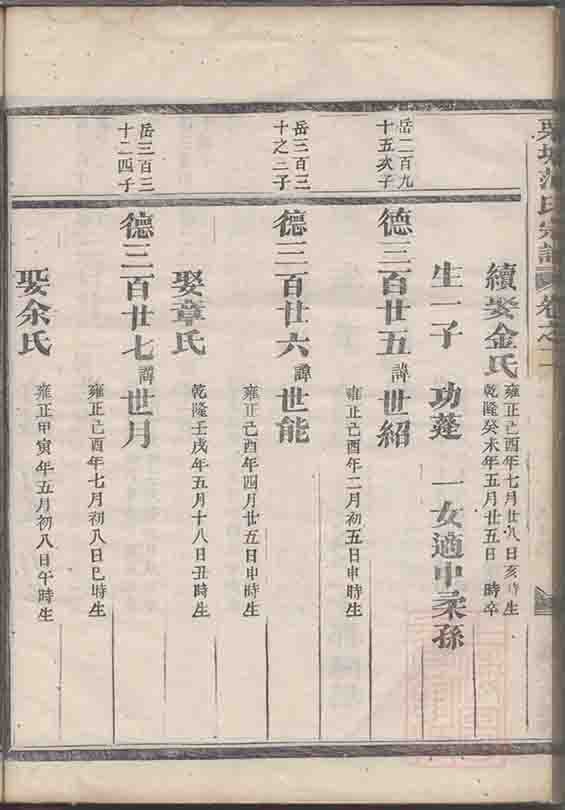 氏宗譜 卷之二
續娶金氏
雍正己酉年七月廿八日亥時生
乾隆癸未年五月廿五日 時卒
生一子 功蓬 一女適中柔孫
岳二百九
十五次子
德三百廿五諱世紹
雍正己酉年二月初五日申時生
岳三百三
十之二子
德三百廿六諱世能
雍正己酉年四月廿五日申時生
娶章氏
乾隆壬戌年五月十八日丑時生
岳三百三
十二四子
德三百廿七諱世月
雍正己酉年七月初八日巳時生
娶余氏
雍正甲寅年五月初八日午時生